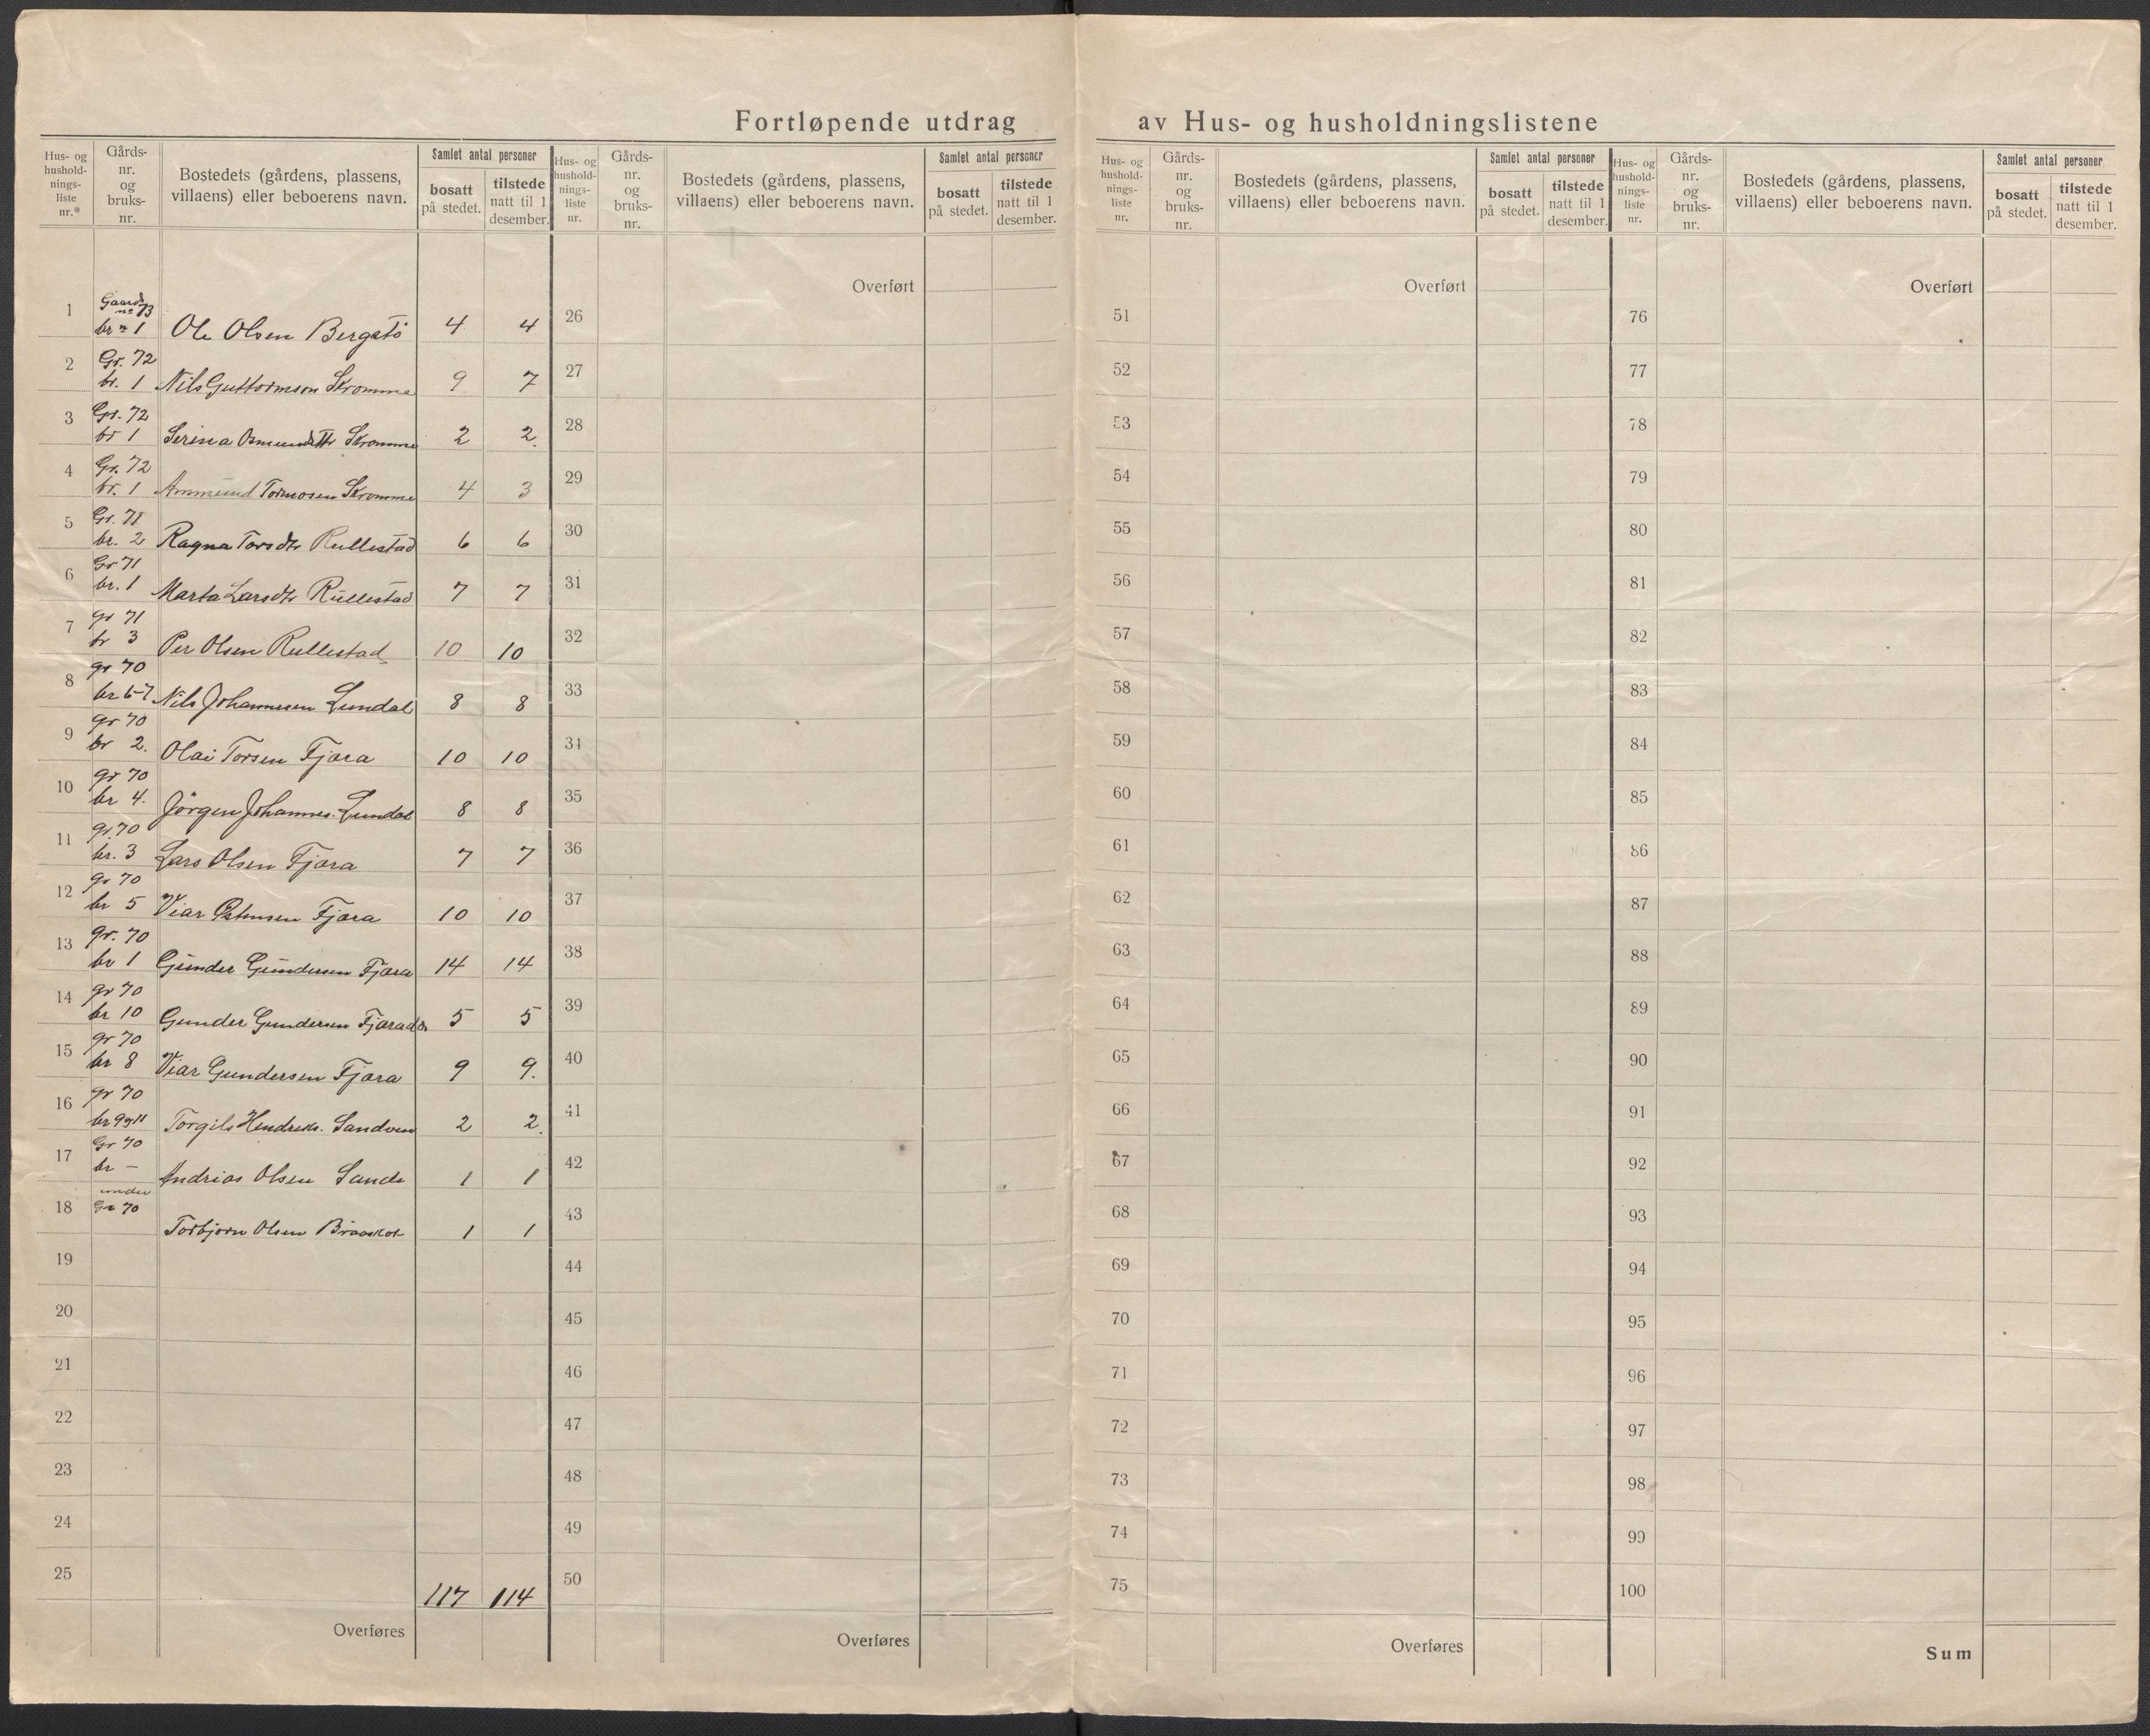 Fortløpende utdrag av Hus- og husholdningslistene
Hus- og hushold-nings-liste nr.* Gårds-nr. og bruks-nr. Bostedets (gårdens, plassens, villaens) eller beboerens navn. Samlet antal personer bosatt på stedet. tilstede natt til 1 desember.
Hus- og hushold-nings-liste nr. Gårds-nr. og bruks-nr. Bostedets (gårdens, plassens, villaens) eller beboerens navn. Samlet antal personer bosatt på stedet. tilstede natt til 1 desember.
Hus- og hushold-nings-liste nr. Gårds-nr. og bruks-nr. Bostedets (gårdens, plassens, villaens) eller beboerens navn. Samlet antal personer bosatt på stedet. tilstede natt til 1 desember.
Hus- og hushold-nings-liste nr. Gårds-nr. og bruks-nr. Bostedets (gårdens, plassens, villaens) eller beboerens navn. Samlet antal personer bosatt på stedet. tilstede natt til 1 desember.
1 Gaards nr 73 br nr 1 Ole Olsen Bergstö 4 4
2 Gr. 72 br. 1 Nils Guttormson Skromme 9 7
3 Gr. 72 br 1 Serina Osmundsdtr Skromme 2 2.
4 Gr. 72 br. 1 Ammund Tormosen Skromme 4 3
5 Gr. 71 br. 2 Ragna Torsdtr Rullestad 6 6
6 Gr 71 br. 1 Marta Larsdtr Rullestad 7 7
7 gr 71 br 3 Per Olsen Rullestad 10 10
8 gr 70 br 6-7 Nils Johannesen Lundal 8 8
9 gr 70 br 2. Olai Torsen Fjæra 10 10
10 gr 70 br 4. Jörgen Johannes. Lundal 8 8
11 gr. 70 br. 3 Lars Olsen Fjæra 7 7
12 gr 70 br 5 Viar Fjæra 10 10
13 gr. 70 br 1 Gunder Gundersen Fjæra 14 14
14 gr 70 br 10 Gunder Gundersen 5 5
15 gr 70 br 8 Viar Gundersen Fjæra 9 9.
16 gr 70 br 9 og 11 Torgils Hendriks. Sandven 2 2.
17 Gr 70 br – Andrias Olsen Sande 1 1
18 under Gr 70 Torbjørn Olsen 1 1
19
20
21
22
23
24
25
117 114
Overføres
Overført
26
27
28
29
30
31
32
33
34
35
36
37
38
39
40
41
42
43
44
45
46
47
48
49
50
Overføres
Overført
51
52
53
54
55
56
57
58
59
60
61
62
63
64
65
66
67
68
69
70
71
72
73
74
75
Overføres
Overført
76
77
78
79
80
81
82
83
84
85
86
87
88
89
90
91
92
93
94
95
96
97
98
99
100
Sum